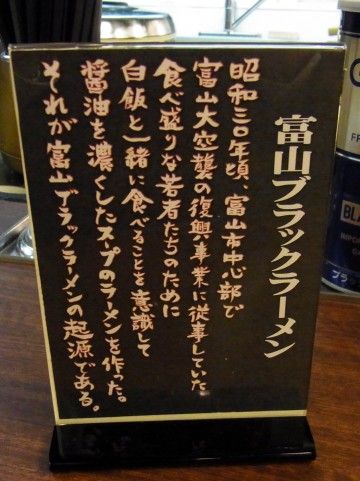 富山ブラックラーメン
昭和三〇年頃、富山市中心部で
富山大空襲の復興事業に従事していた
食べ盛りな若者たちのために
白飯と一緒に食べることを意識して
醤油を濃くしたスープのラーメンを作った。
それが富山ブラックラーメンの起源である。